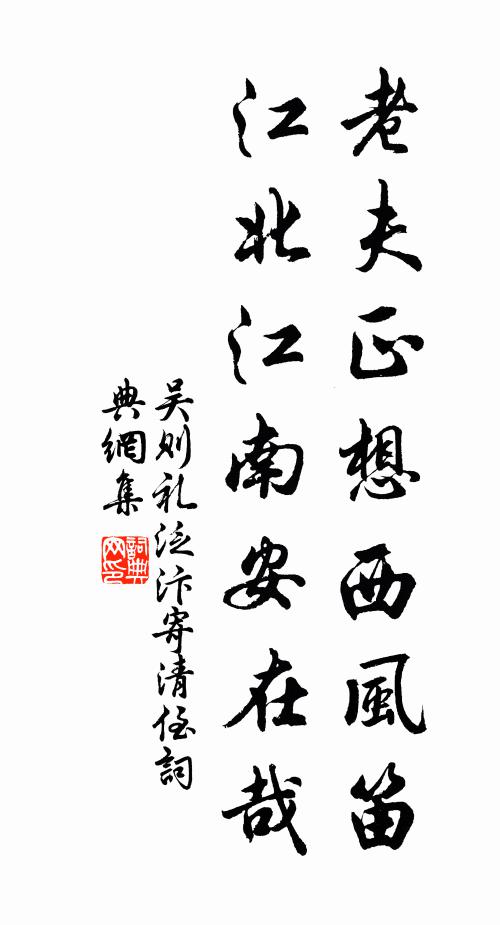 老夫正想西風笛
江北江南安在哉
吴则礼泛汴寄清侄詞
典網集
詞典網印